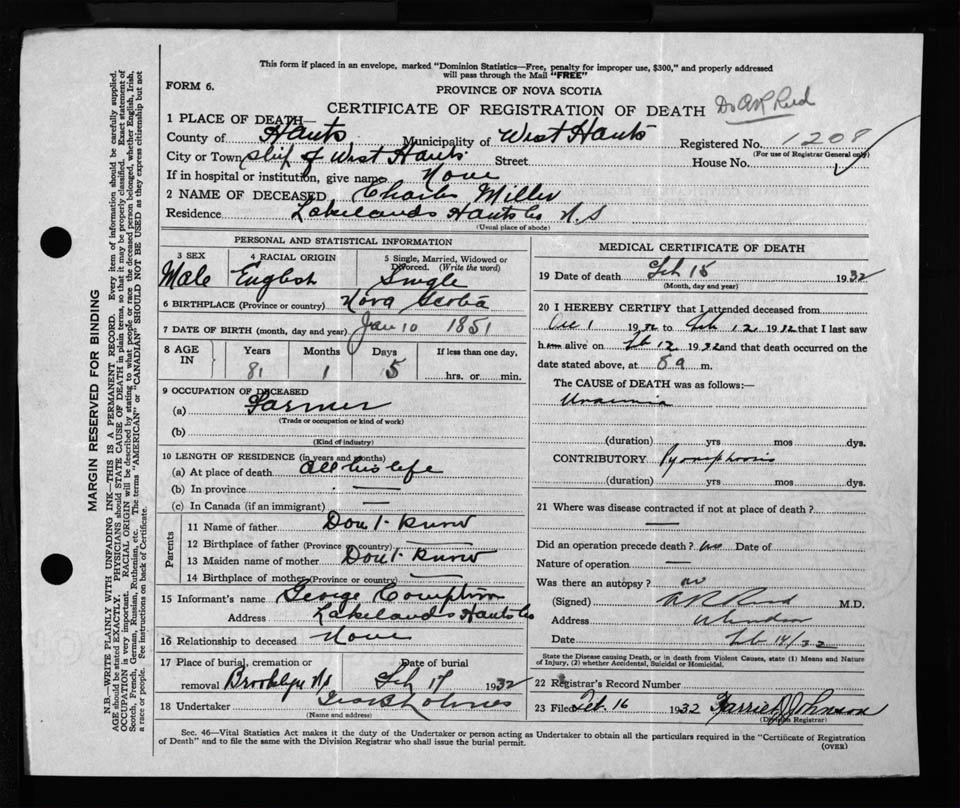 This form if placed in an envelope, marked "Dominion Statistics—Free, penalty for improper use, $300," and properly addressed
will pass through the Mail "FREE"
FORM 6.
PROVINCE OF NOVA SCOTIA
CERTIFICATE OF REGISTRATION OF DEATH Dr A R Reid
1 PLACE OF DEATH—
County of Hants Municipality of West Hants Registered No. 1208
(For use of Registrar General only)
City or Town Ship of West Hants Street House No.
If in hospital or institution, give name None
2 NAME OF DECEASED Charles Miller
Residence Lakelands Hants Co N.S
(Usual place of abode)
PERSONAL AND STATISTICAL INFORMATION
3 SEX 4 RACIAL ORIGIN 5 Single, Married, Widowed or
Divorced. (Write the word)
Male English Single
6 BIRTHPLACE (Province or country) Nova Scotia
7 DATE OF BIRTH (month, day and year) Jan 10 1851
8 AGE IN Years Months Days If less than one day,
81 1 5 hrs. or min.
9 OCCUPATION OF DECEASED
(a) Farmer
(Trade or occupation or kind of work)
(b)
(Kind of industry)
10 LENGTH OF RESIDENCE (in years and months)
(a) At place of death all his life
(b) In province —
(c) In Canada (if an immigrant) —
Parents
11 Name of father Don't know
12 Birthplace of father (Province or country) —
13 Maiden name of mother Don't know
14 Birthplace of mother (Province or country) —
15 Informant's name George Compton
Address Lakelands Hants Co
16 Relationship to deceased None
17 Place of burial, cremation or Date of burial
removal Brooklyn N.S Feb 17 1932
18 Undertaker Holmes
(Name and address)
MEDICAL CERTIFICATE OF DEATH
19 Date of death Feb 15 1932
(Month, day and year)
20 I HEREBY CERTIFY that I attended deceased from
1 19 to Feb 12 1932 that I last saw
him alive on Feb 12 1932 and that death occurred on the
date stated above, at 8 a m.
The CAUSE of DEATH was as follows:—
Uraemia
(duration) yrs mos dys.
CONTRIBUTORY Pyonephrosis
(duration) yrs mos dys.
21 Where was disease contracted if not at place of death?
—
Did an operation precede death? no Date of
Nature of operation —
Was there an autopsy? no
(Signed) A R Reid M.D.
Address Windsor
Date Feb 14/32
State the Disease causing Death, or in death from Violent Causes, state (1) Means and Nature
of Injury, (2) whether Accidental, Suicidal or Homicidal.
22 Registrar's Record Number
23 Filed Feb. 16 1932 Harriet J Johnson
(Division Registrar)
Sec. 46—Vital Statistics Act makes it the duty of the Undertaker or person acting as Undertaker to obtain all the particulars required in the "Certificate of Registration
of Death" and to file the same with the Division Registrar who shall issue the burial permit.
(OVER)
MARGIN RESERVED FOR BINDING
N.B.—WRITE PLAINLY WITH UNFADING INK—THIS IS A PERMANENT RECORD. Every item of information should be carefully supplied.
AGE should be stated EXACTLY. PHYSICIANS should STATE CAUSE OF DEATH in plain terms, so that it may be properly classified. Exact statement of
OCCUPATION is very important. RACIAL ORIGIN will be described by stating to what people or race the deceased person belonged, whether English, Irish,
Scotch, French, German, Russian, Ruthenian, etc. The terms "AMERICAN" or "CANADIAN" SHOULD NOT BE USED as they express citizenship but not
a race or people. See instructions on back of Certificate.